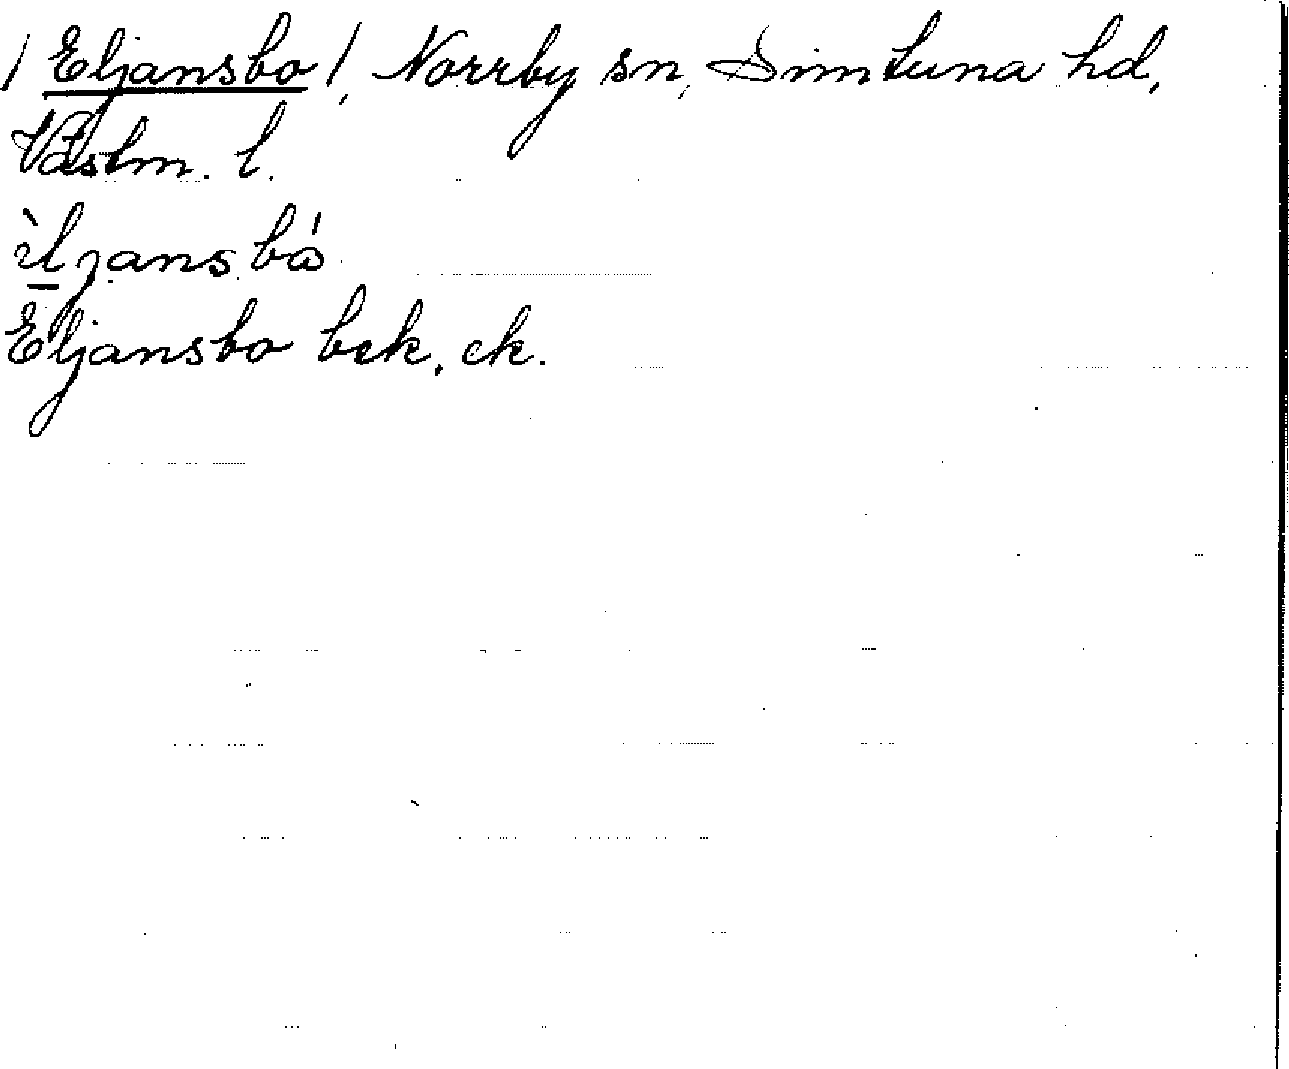 /Eljansbo/, Norrby sn, Simtuna hd,
Västm. l.
ìljansbó
Eljansbo bek, ek.